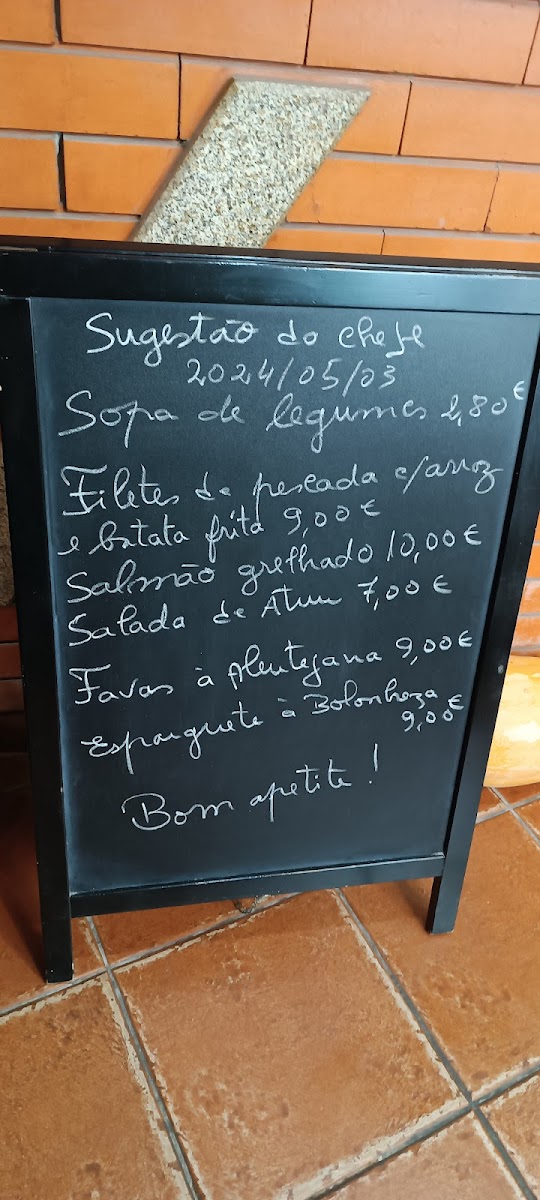 Sugestão do chefe
2024/05/03
Sopa de legumes 2,80€
Filetes de pescada c/arroz
e batata frita 9,00€
Salmão grelhado 10,00€
Salada de Atum 7,00€
Favas à Alentejana 9,00€
Esparguete à Bolonheza
9,00€
Bom apetite!